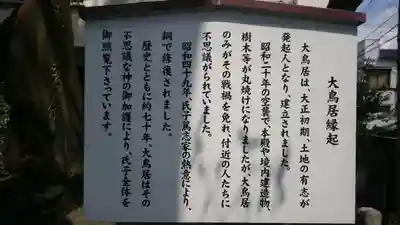 大鳥居縁起
大鳥居は、大正初期、土地の有志が
発起人となり、建立されました。
昭和二十年の空襲で、本殿や境内建造物、
樹木等が丸焼けになりましたが、大鳥居
のみがその戦禍を免れ、付近の人たちに
不思議がられていました。
昭和四十九年、氏子篤志家の熱意により、
銅で修復されました。
歴史とともに約七十年、大鳥居はその
不思議な神の御加護により、氏子全体を
御照覧下さっています。